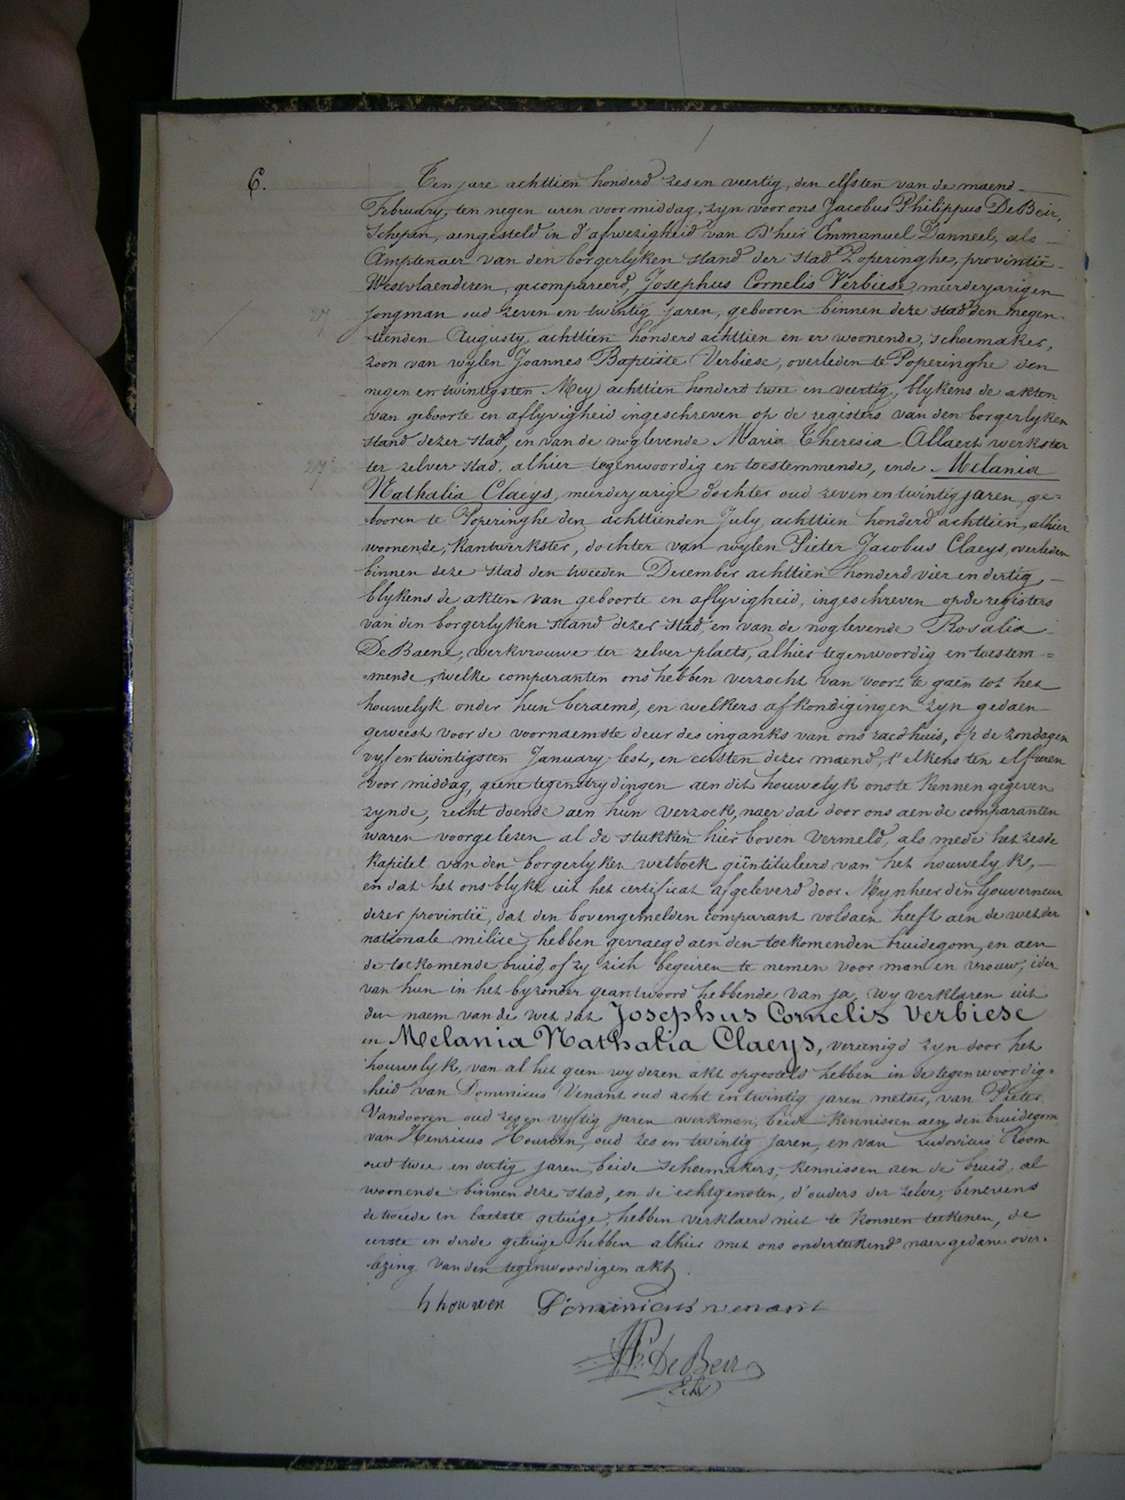 6.
Ten jare achttien honderd zes en veertig, den elfsten van de maend
February, ten negen uren voormiddag, zyn voor ons Jacobus Philippus De Beir,
Schepen, aengesteld in d'afwezigheid van D'heer Emmanuel Danneel, als
Amptenaer van den borgerlyken stand der stad Poperinghe, provintie
Westvlaenderen, gecompareerd, Josephus Cornelis Verbiese, meerderjarigen
jongman oud zeven en twintig jaren, gebooren binnen deze stad den negen-
tienden Augusty achttien honderd achttien en er woonende, schoemaker,
zoon van wylen Joannes Baptiste Verbiese, overleden te Poperinghe den
negen en twintigsten Mey achttien honderd twee en veertig, blykens de akten
van geboorte en aflyvigheid ingeschreven op de registers van den borgerlyken
stand dezer stad, en van de noglevende Maria Theresia Allaert werkster
ter zelver stad, alhier tegenwoordig en toestemmende, ende Melania
Nathalia Claeys, meerderjarige dochter oud zeven en twintig jaren, ge-
booren te Poperinghe den achttienden July achttien honderd achttien, alhier
woonende, kantwerkster, dochter van wylen Pieter Jacobus Claeys, overleden
binnen deze stad den tweeden December achttien honderd vier en dertig
blykens de akten van geboorte en aflyvigheid, ingeschreven op de registers
van den borgerlyken stand dezer stad en van de noglevende Rosalia
De Baene, werkvrouwe ter zelver plaets, alhier tegenwoordig en toestem=
mende, welke comparanten ons hebben verzocht van voort te gaen tot het
houwelyk onder hun beraemd, en welkers afkondigingen zyn gedaen
geweest voor de voornaemste deur des inganks van ons raedhuis, op de zondagen
vyf en twintigsten January lest, en eersten dezer maend, t'elkens ten elf uren
voor middag, geene tegenstrydingen aen dit houwelyk ons te kennen gegeven
zynde, recht doende aen hun verzoek, naer dat door ons aen de comparanten
waren voorgelezen al de stukken hier boven vermeld, als mede het zesde
kapitel van den borgerlyken wetboek geïntituleerd van het houwelyk,
en dat het ons blykt uit het certificat afgeleverd door Mynheer den Gouverneur
dezer provintie, dat den bovengemelden comparant voldaen heeft aen de wet der
nationale milice, hebben gevraegd aen den toekomenden bruidegom, en aen
de toekomende bruid, of zy zich begeiren te nemen voor man en vrouw, ider
van hun in het byzonder geantwoord hebbende van ja, wy verklaren uit
den naem van de wet dat Josephus Cornelis Verbiese
en Melania Nathalia Claeys, vereenigd zyn door het
houwelyk, van al het geen wy dezen akt opgesteld hebben in de tegenwoordig-
heid van Dominicus Venant oud acht en twintig jaren metser, van Pieter
Vandooren oud zes en vyftig jaren werkman, beide kennissen aen den bruidegom
van Henricus Houwen, oud zes en twintig jaren, en van Ludovicus Room
oud twee en dertig jaren, beide schoemakers, kennissen aen de bruid, al
woonende binnen deze stad, en de echtgenoten, d'ouders der zelve, benevens
de tweede en laetste getuige, hebben verklaerd niet te konnen teekenen, de
eerste en derde getuige hebben alhier met ons onderteekend naer gedane over-
lezing van den tegenwoordigen akt.
h houwen Dominicus venant
De Beir